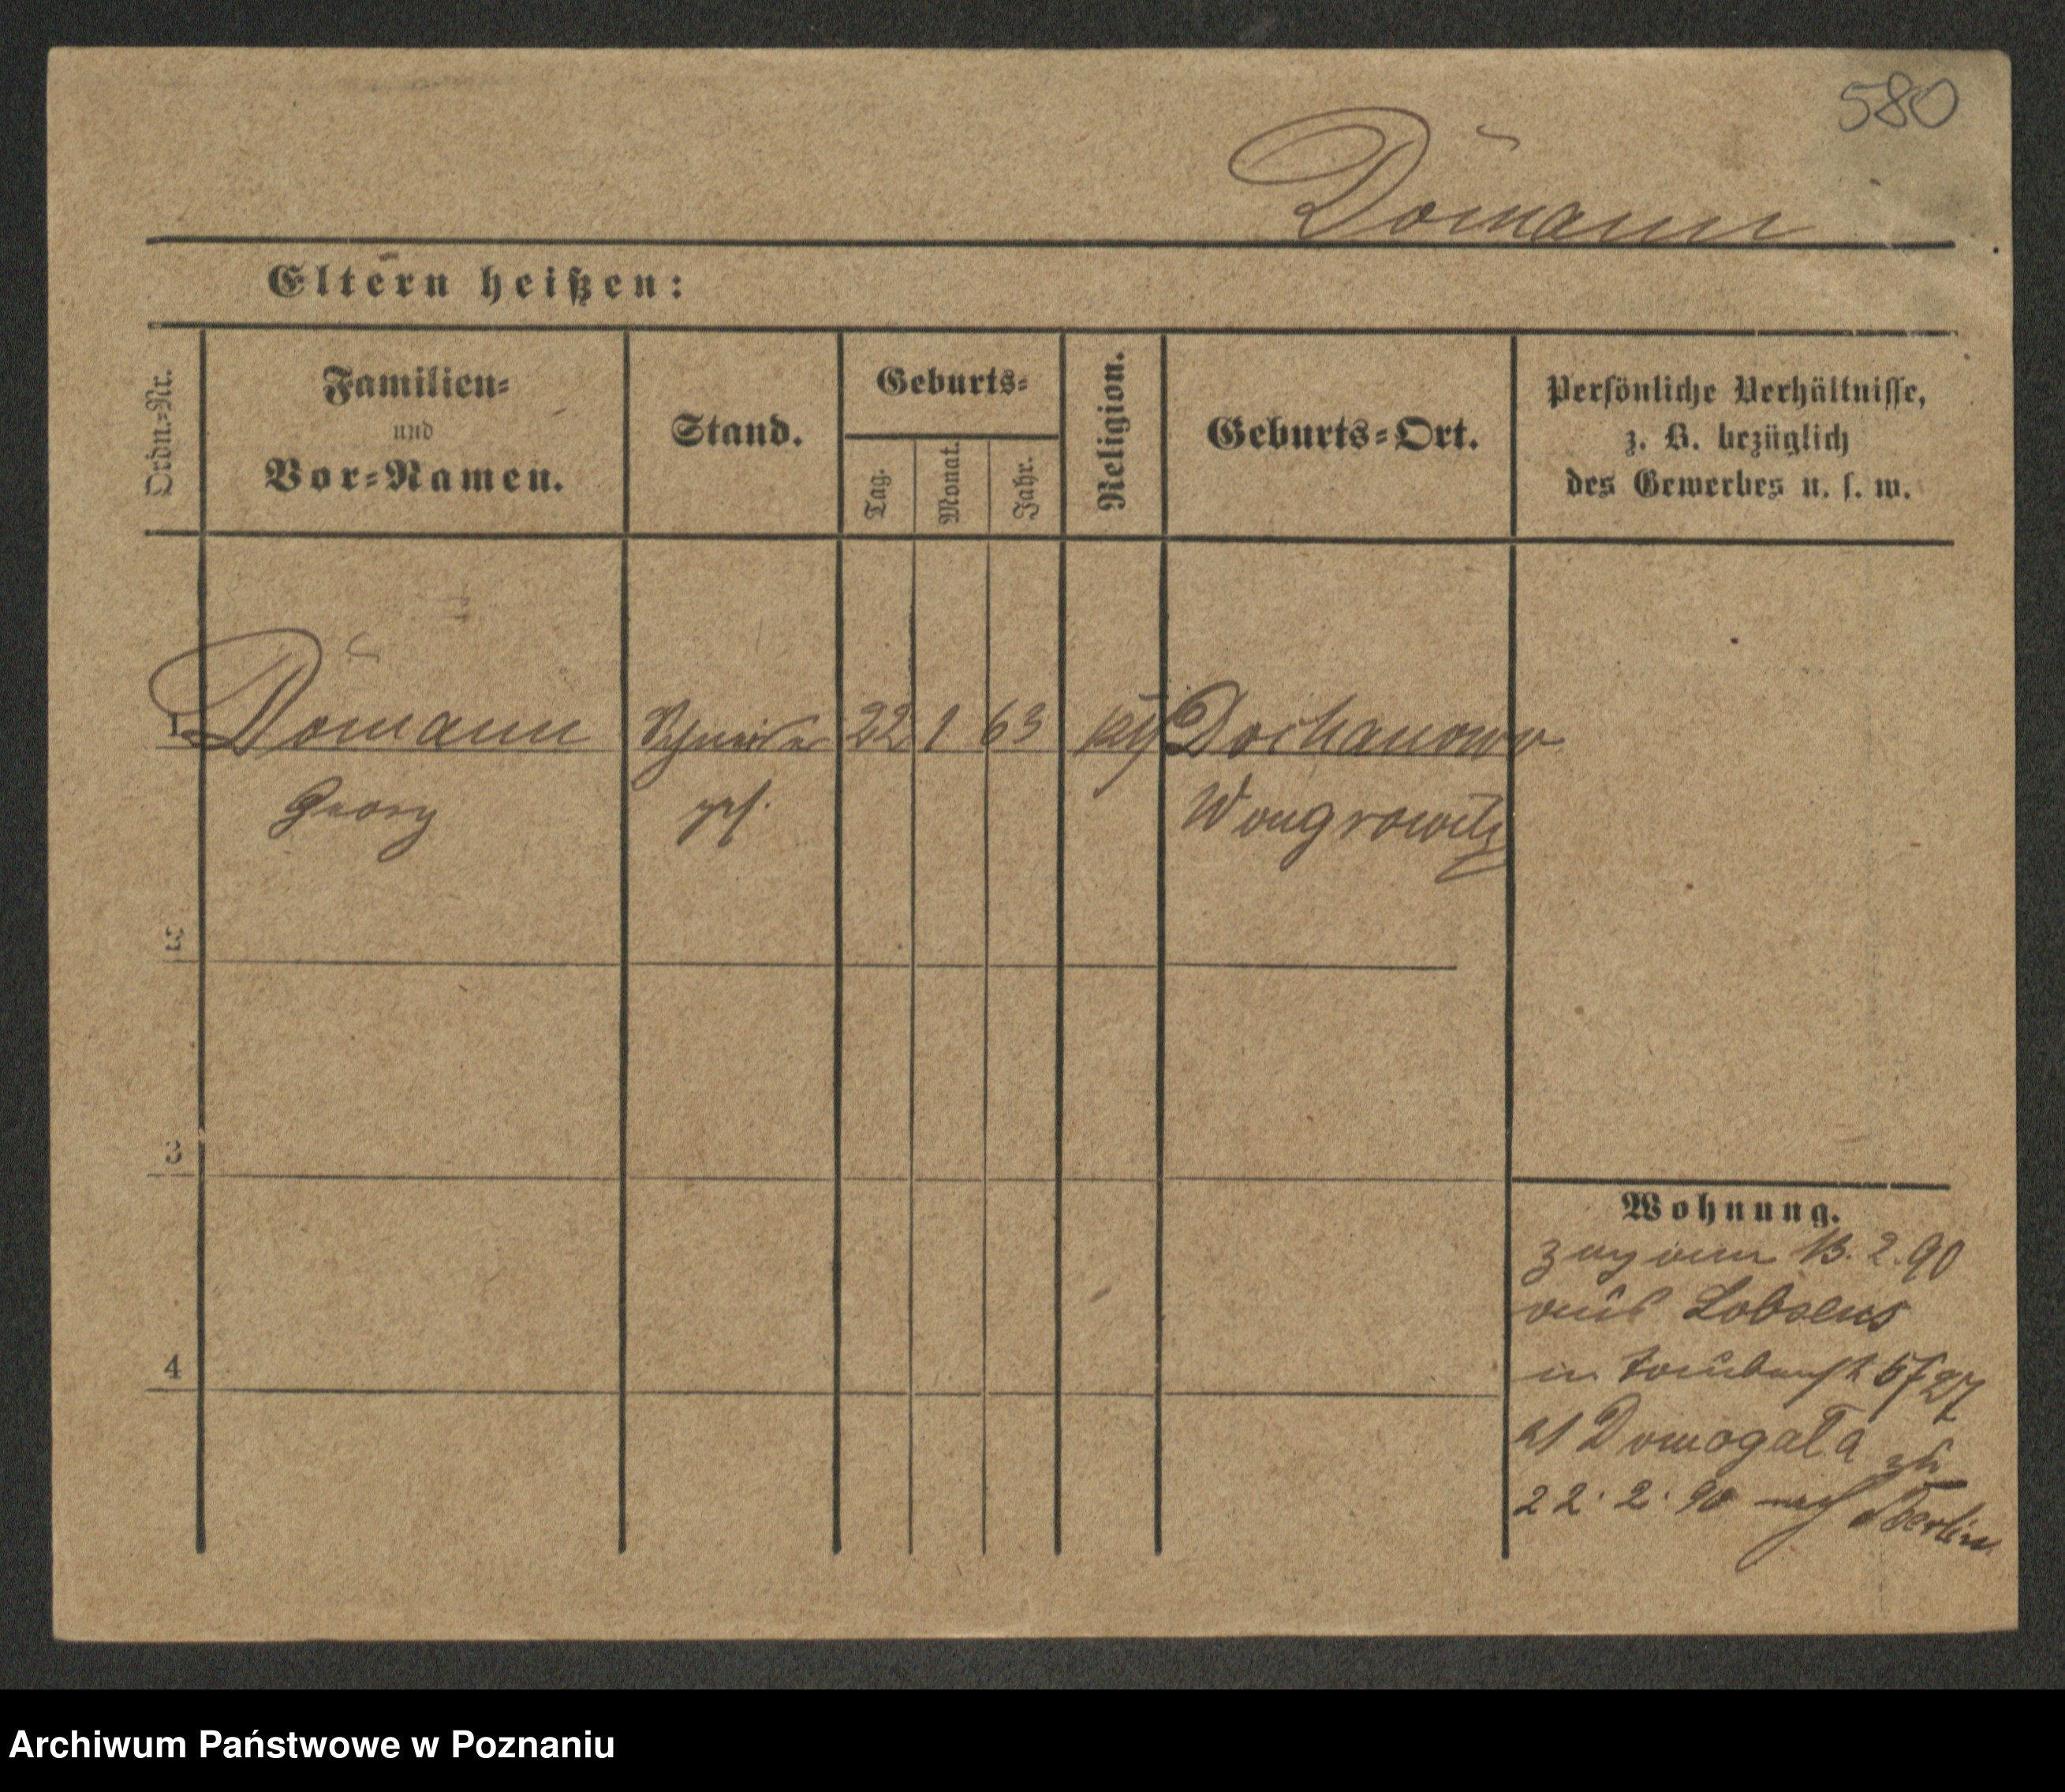 580
Dómann
Eltern heißen:
Ordn.=Nr.
Familien=
und
Vor=Namen.
Stand.
Geburts=
Tag.
Monat.
Jahr.
Religion.
Geburts=Ort.
Persönliche Verhältnisse,
z. B. bezüglich
des Gewerbes u. s. w.
1 Dómann Schneider 22 1 63 kth Dochanowo
Georg ges. Wongrowitz
2
3
4
Wohnung.
zug von 13. 2. 90
aus Lobsens
in 27
Domogala
22. 2. 90 nach Berlin
Archiwum Państwowe w Poznaniu